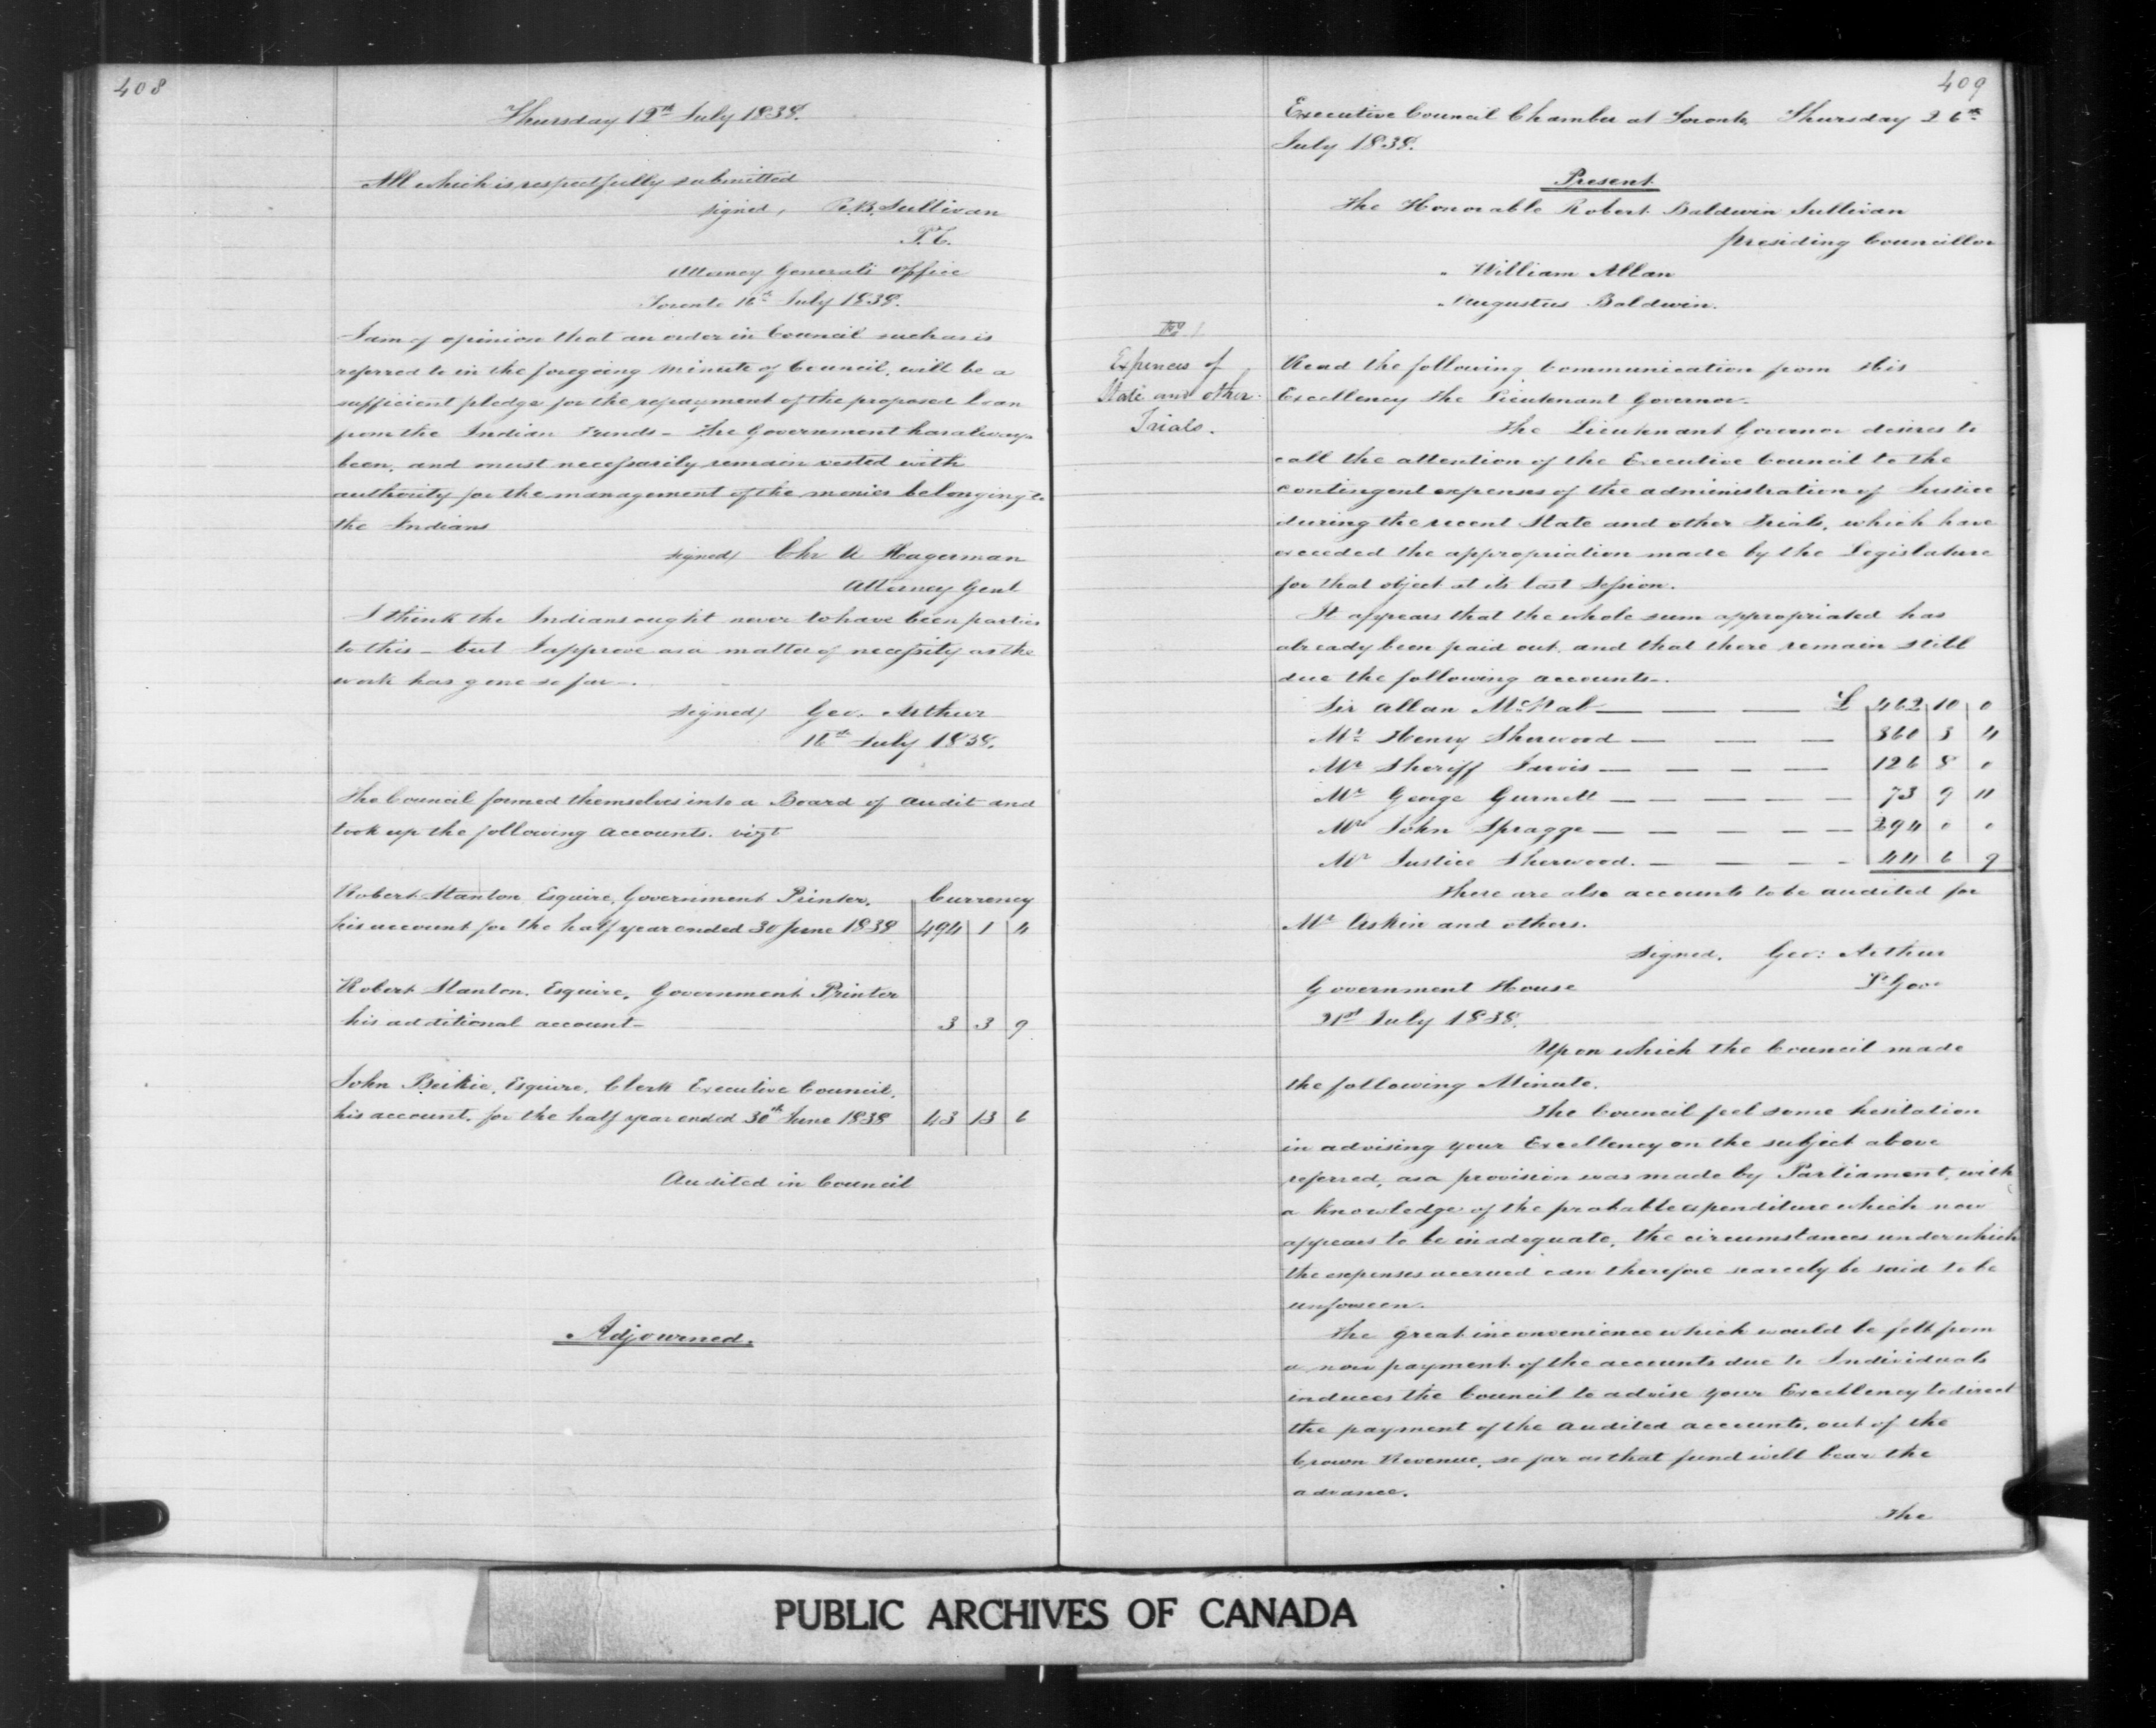 408
Thursday 12th July 1838.
All which is respectfully submitted
signed, R.B. Sullivan
P.C.
Attorney Generals Office
Toronto 16th July 1838.
I am of opinion that an order in Council such as is
referred to in the foregoing minute of Council, will be a
sufficient pledge for the repayment of the proposed loan
from the Indian Funds - The Government has always
been, and must necessarily remain vested with
authority for the management of the monies belonging to
the Indians
signed, Chr A Hagerman
Attorney Genl
I think the Indians ought never to have been parties
to this - but I approve as a matter of necessity as the
work has gone so far -.
signed, Geo. Arthur
16th July 1838.
The Council formed themselves into a Board of Audit and
took up the following accounts. vizt
Robert Stanton Esquire, Government Printer, Currency
his account for the half year ended 30 June 1838 494 1 4
Robert Stanton. Esquire, Government Printer
his additional account - 3 3 9
John Beikie, Esquire, Clerk Executive Council,
his account, for the half year ended 30th June 1838 43 13 6
Audited in Council
Adjourned.
409
Executive Council Chamber at Toronto, Thursday 26th
July 1838.
Present
The Honorable Robert Baldwin Sullivan
presiding Councillor
" William Allan
" Augustus Baldwin.
Expences of
State and other
Trials.
Read the following Communication from His
Excellency the Lieutenant Governor.
The Lieutenant Governor desires to
call the attention of the Executive Council to the
contingent expenses of the administration of Justice
during the recent State and other Trials, which have
exceeded the appropriation made by the Legislature
for that object at its last Session.
It appears that the whole sum appropriated has
already been paid out, and that there remain still
due the following accounts -.
Sir Allan McNab — — — £ 462 10 0
Mr Henry Sherwood — — — 360 3 4
Mr Sheriff Jarvis — — — — 126 8 0
Mr George Gurnett — — — — — 73 9 11
Mr John Spragge — — — — — 294 0 0
Mr Justice Sherwood. — — — — 44 6 9
There are also accounts to be audited for
Mr Askin and others.
signed. Geo: Arthur
Government House Lt Gov
21st July 1838.
Upon which the Council made
the following Minute.
The Council feel some hesitation
in advising your Excellency on the subject above
referred, as a provision was made by Parliament, with
a knowledge of the probable expenditure which now
appears to be inadequate, the circumstances under which
the expenses accrued can therefore scarcely be said to be
unforseen.
The great inconvenience which would be felt from
a non payment of the accounts due to Individuals
induces the Council to advise your Excellency to direct
the payment of the audited accounts, out of the
Crown Revenue, so far as that fund will bear the
advance.
The
PUBLIC ARCHIVES OF CANADA